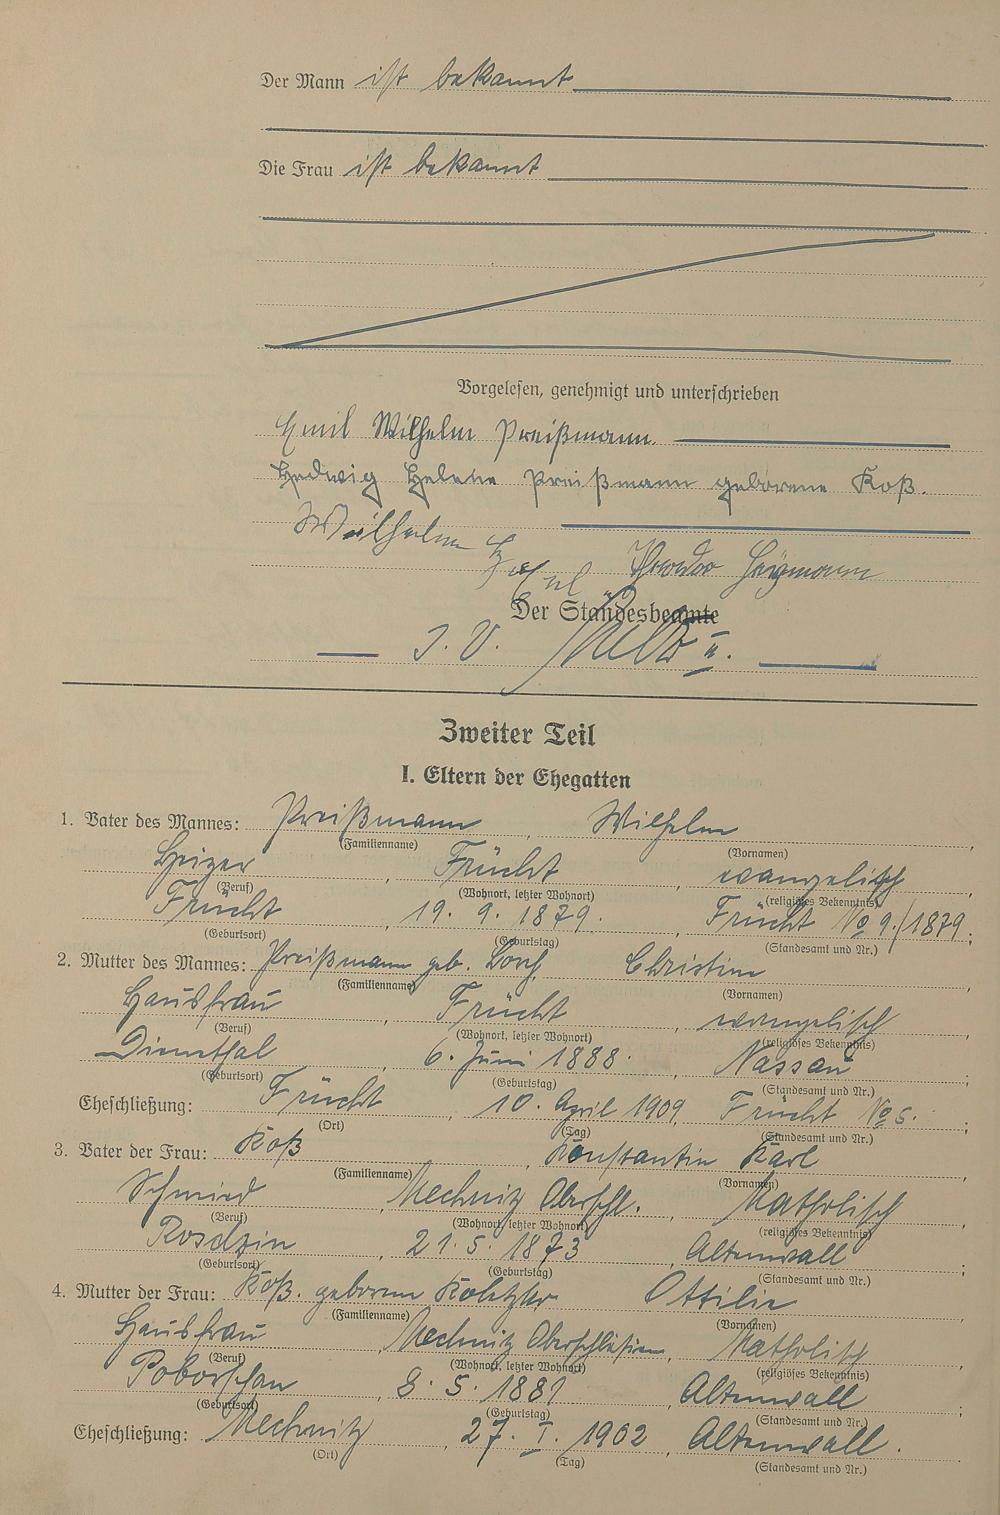 Der Mann ist bekannt
Die Frau ist bekannt
Vorgelesen, genehmigt und unterschrieben
Emil Wilhelm Preißmann.
Hedwig Helene Preißmann geborene Koß.
Wilhelm
Theodor Heymann
Der Standesbeamte
J. V. II.
Zweiter Teil
I. Eltern der Ehegatten
1. Vater des Mannes: Preißmann, Wilhelm,
(Familienname) (Vornamen)
Heizer, Frücht, evangelisch,
(Beruf) (Wohnort, letzter Wohnort) (religiöses Bekenntnis)
Frücht, 19. 9. 1879. Frücht No 9./1879.;
(Geburtsort) (Geburtstag) (Standesamt und Nr.)
2. Mutter des Mannes: Preißmann geb. Christine,
(Familienname) (Vornamen)
Hausfrau, Frücht, evangelisch,
(Beruf) (Wohnort, letzter Wohnort) (religiöses Bekenntnis)
Dienethal, 6. Juni 1888., Nassau;
(Geburtsort) (Geburtstag) (Standesamt und Nr.)
Eheschließung: Frücht, 10. April 1909, Frücht No 5.
(Ort) (Tag) (Standesamt und Nr.)
3. Vater der Frau: Koß, Konstantin Karl
(Familienname) (Vornamen)
Schmied, Mechnitz Oberschl., Katholisch,
(Beruf) (Wohnort, letzter Wohnort) (religiöses Bekenntnis)
Rosdzin, 21. 5. 1873, Altenwall;
(Geburtsort) (Geburtstag) (Standesamt und Nr.)
4. Mutter der Frau: Koß. geborene Ottilie
(Familienname) (Vornamen)
Hausfrau, Mechnitz Oberschlesien, Katholisch,
(Beruf) (Wohnort, letzter Wohnort) (religiöses Bekenntnis)
Poborschau, 8. 5. 1881, Altenwall;
(Geburtsort) (Geburtstag) (Standesamt und Nr.)
Eheschließung: Mechnitz, 27. I. 1902, Altenwall.
(Ort) (Tag) (Standesamt und Nr.)